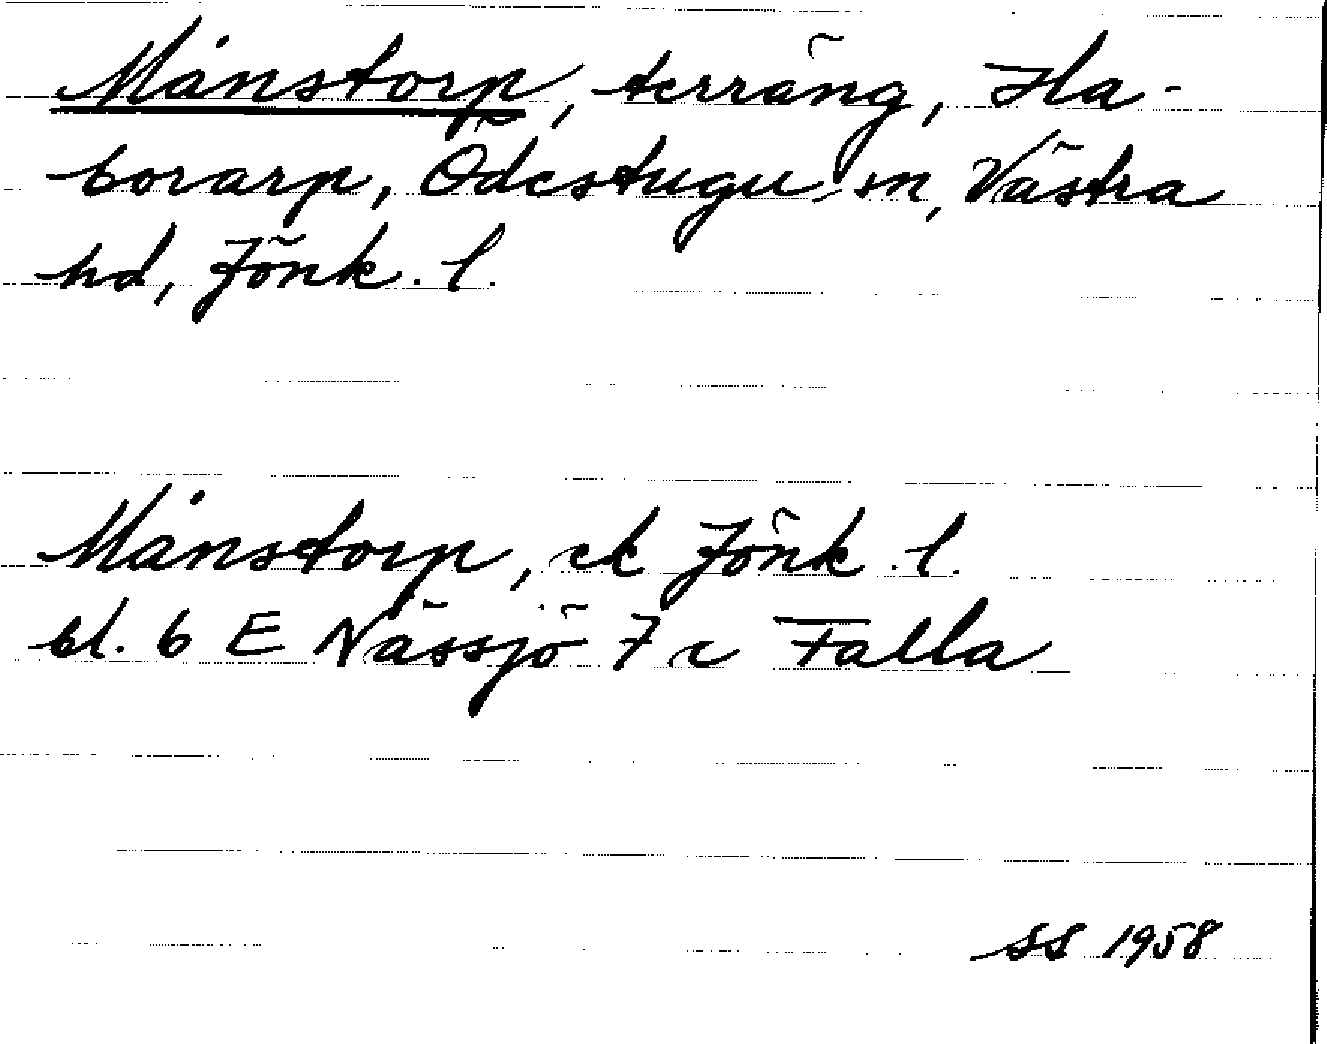 Månstorp, terräng, Ha-
borarp, Ödestugu sn, Västra
hd, Jönk. l.
Månstorp, ek Jönk. l.
bl. 6 E Nässjö 7 c Falla
SS 1958